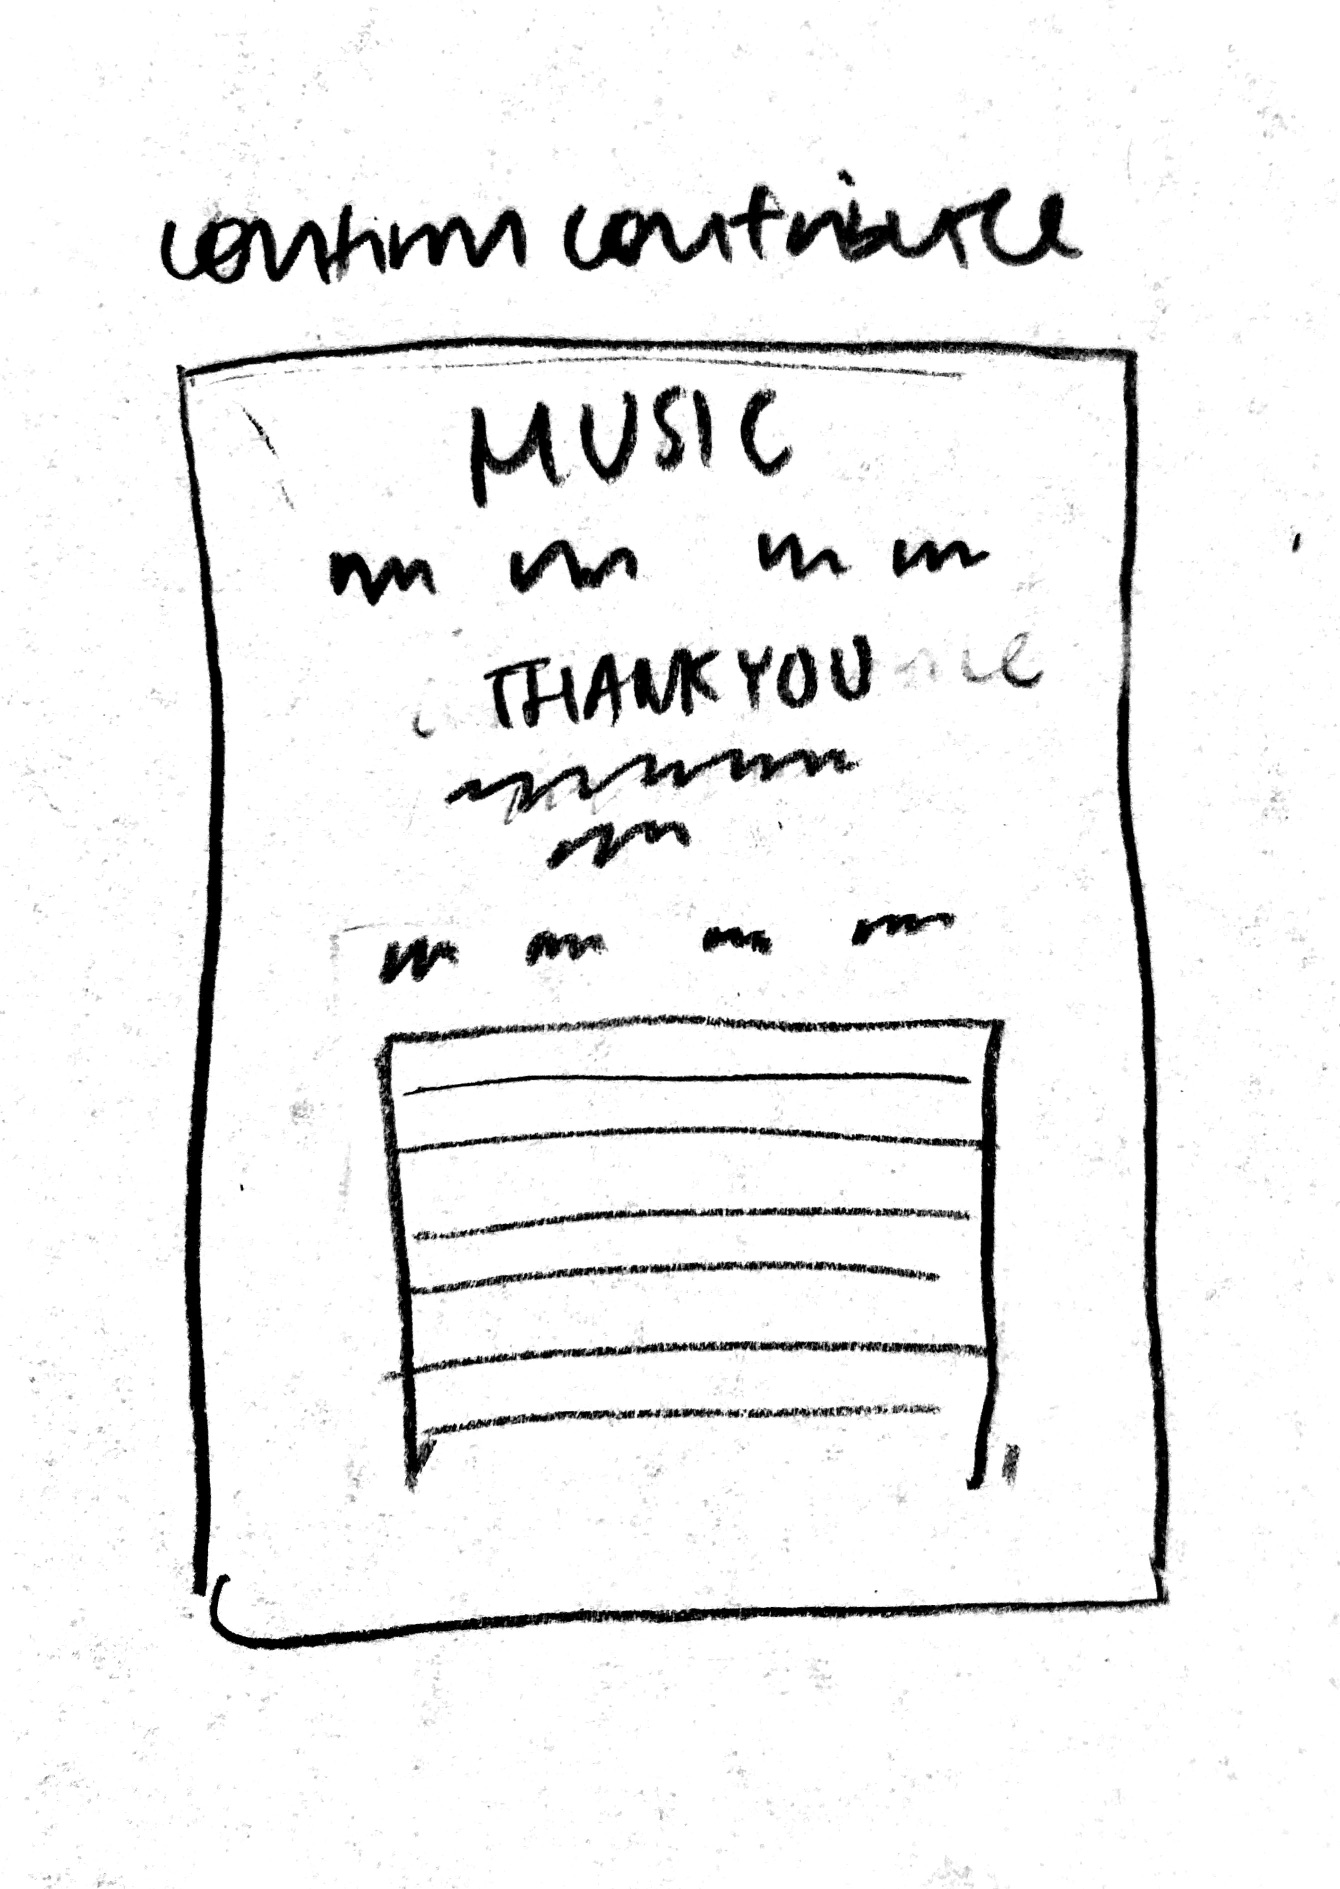 confirm contribute
MUSIC
THANK YOU